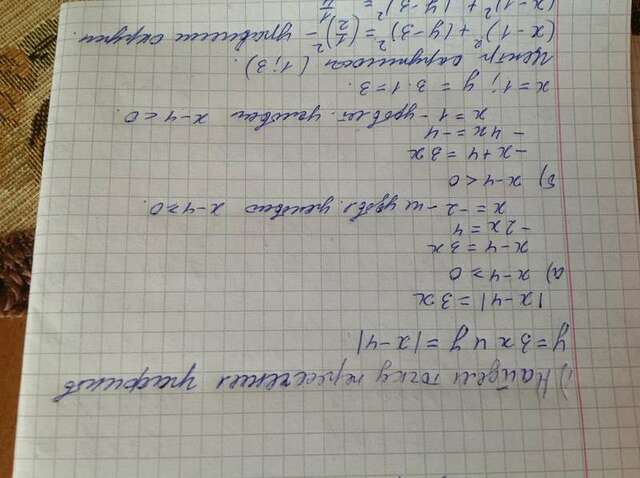 1) Найдём точку пересечения графиков
y = 3x и y = |x-4|
|x-4| = 3x
а) x-4 ≥ 0
x-4 = 3x
-2x = 4
x = -2 - не удовл. условию x-4 ≥ 0.
б) x-4 < 0
-x+4 = 3x
-4x = -4
x = 1 - удовлет. условию x-4 < 0.
x = 1; y = 3·1 = 3.
Центр окружности (1; 3).
(x-1)² + (y-3)² = (1/2)² - уравнение окружн.
(x-1)² + (y-3)² =